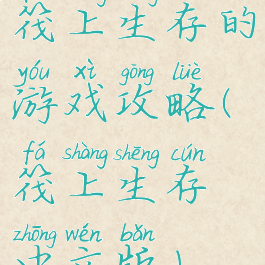 筏上生存的
yóu xì gōng lüè
游戏攻略(
fá shàng shēng cún
筏上生存
zhōng wén bǎn
中文版)